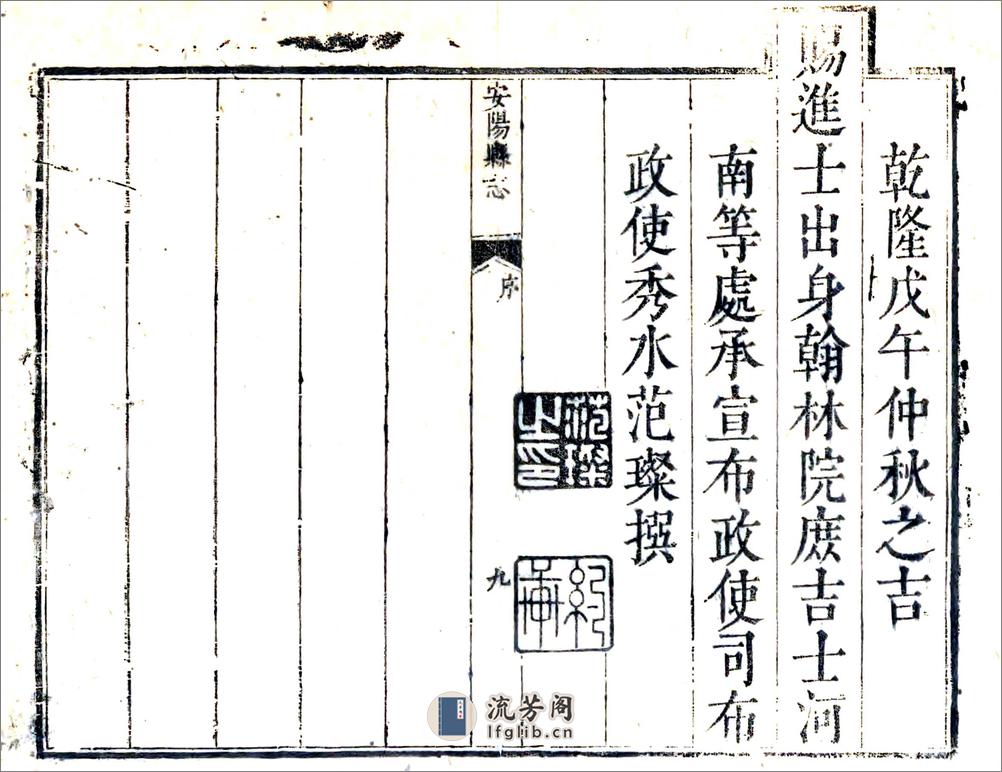 乾隆戊午仲秋之吉
賜進士出身翰林院庶吉士河
南等處承宣布政使司布
政使秀水范璨撰
范璨之印
安陽縣志
序
九
流芳阁
lfglib.cn